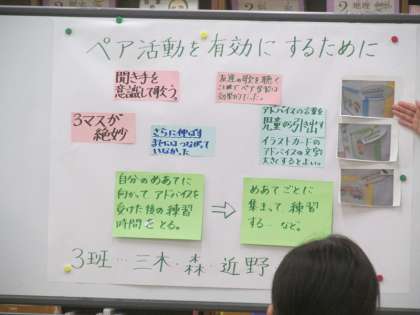 ペア活動を有効にするために
聞き手を
意識して歌う。
友達の歌を聴く
ことでペア学習は
効果的だった。
3マスが
絶妙
さらに伸ばす
までにはつながって
いなかった
アドバイスの言葉を
児童の引出す
イラストカードの
アドバイスの文字
大きくするとよい。
自分のめあてに
向かってアドバイスを
受けた後の練習
時間をとる。
⇒
めあてごとに
集まって練習
する… など。
3班…三木・森・近野